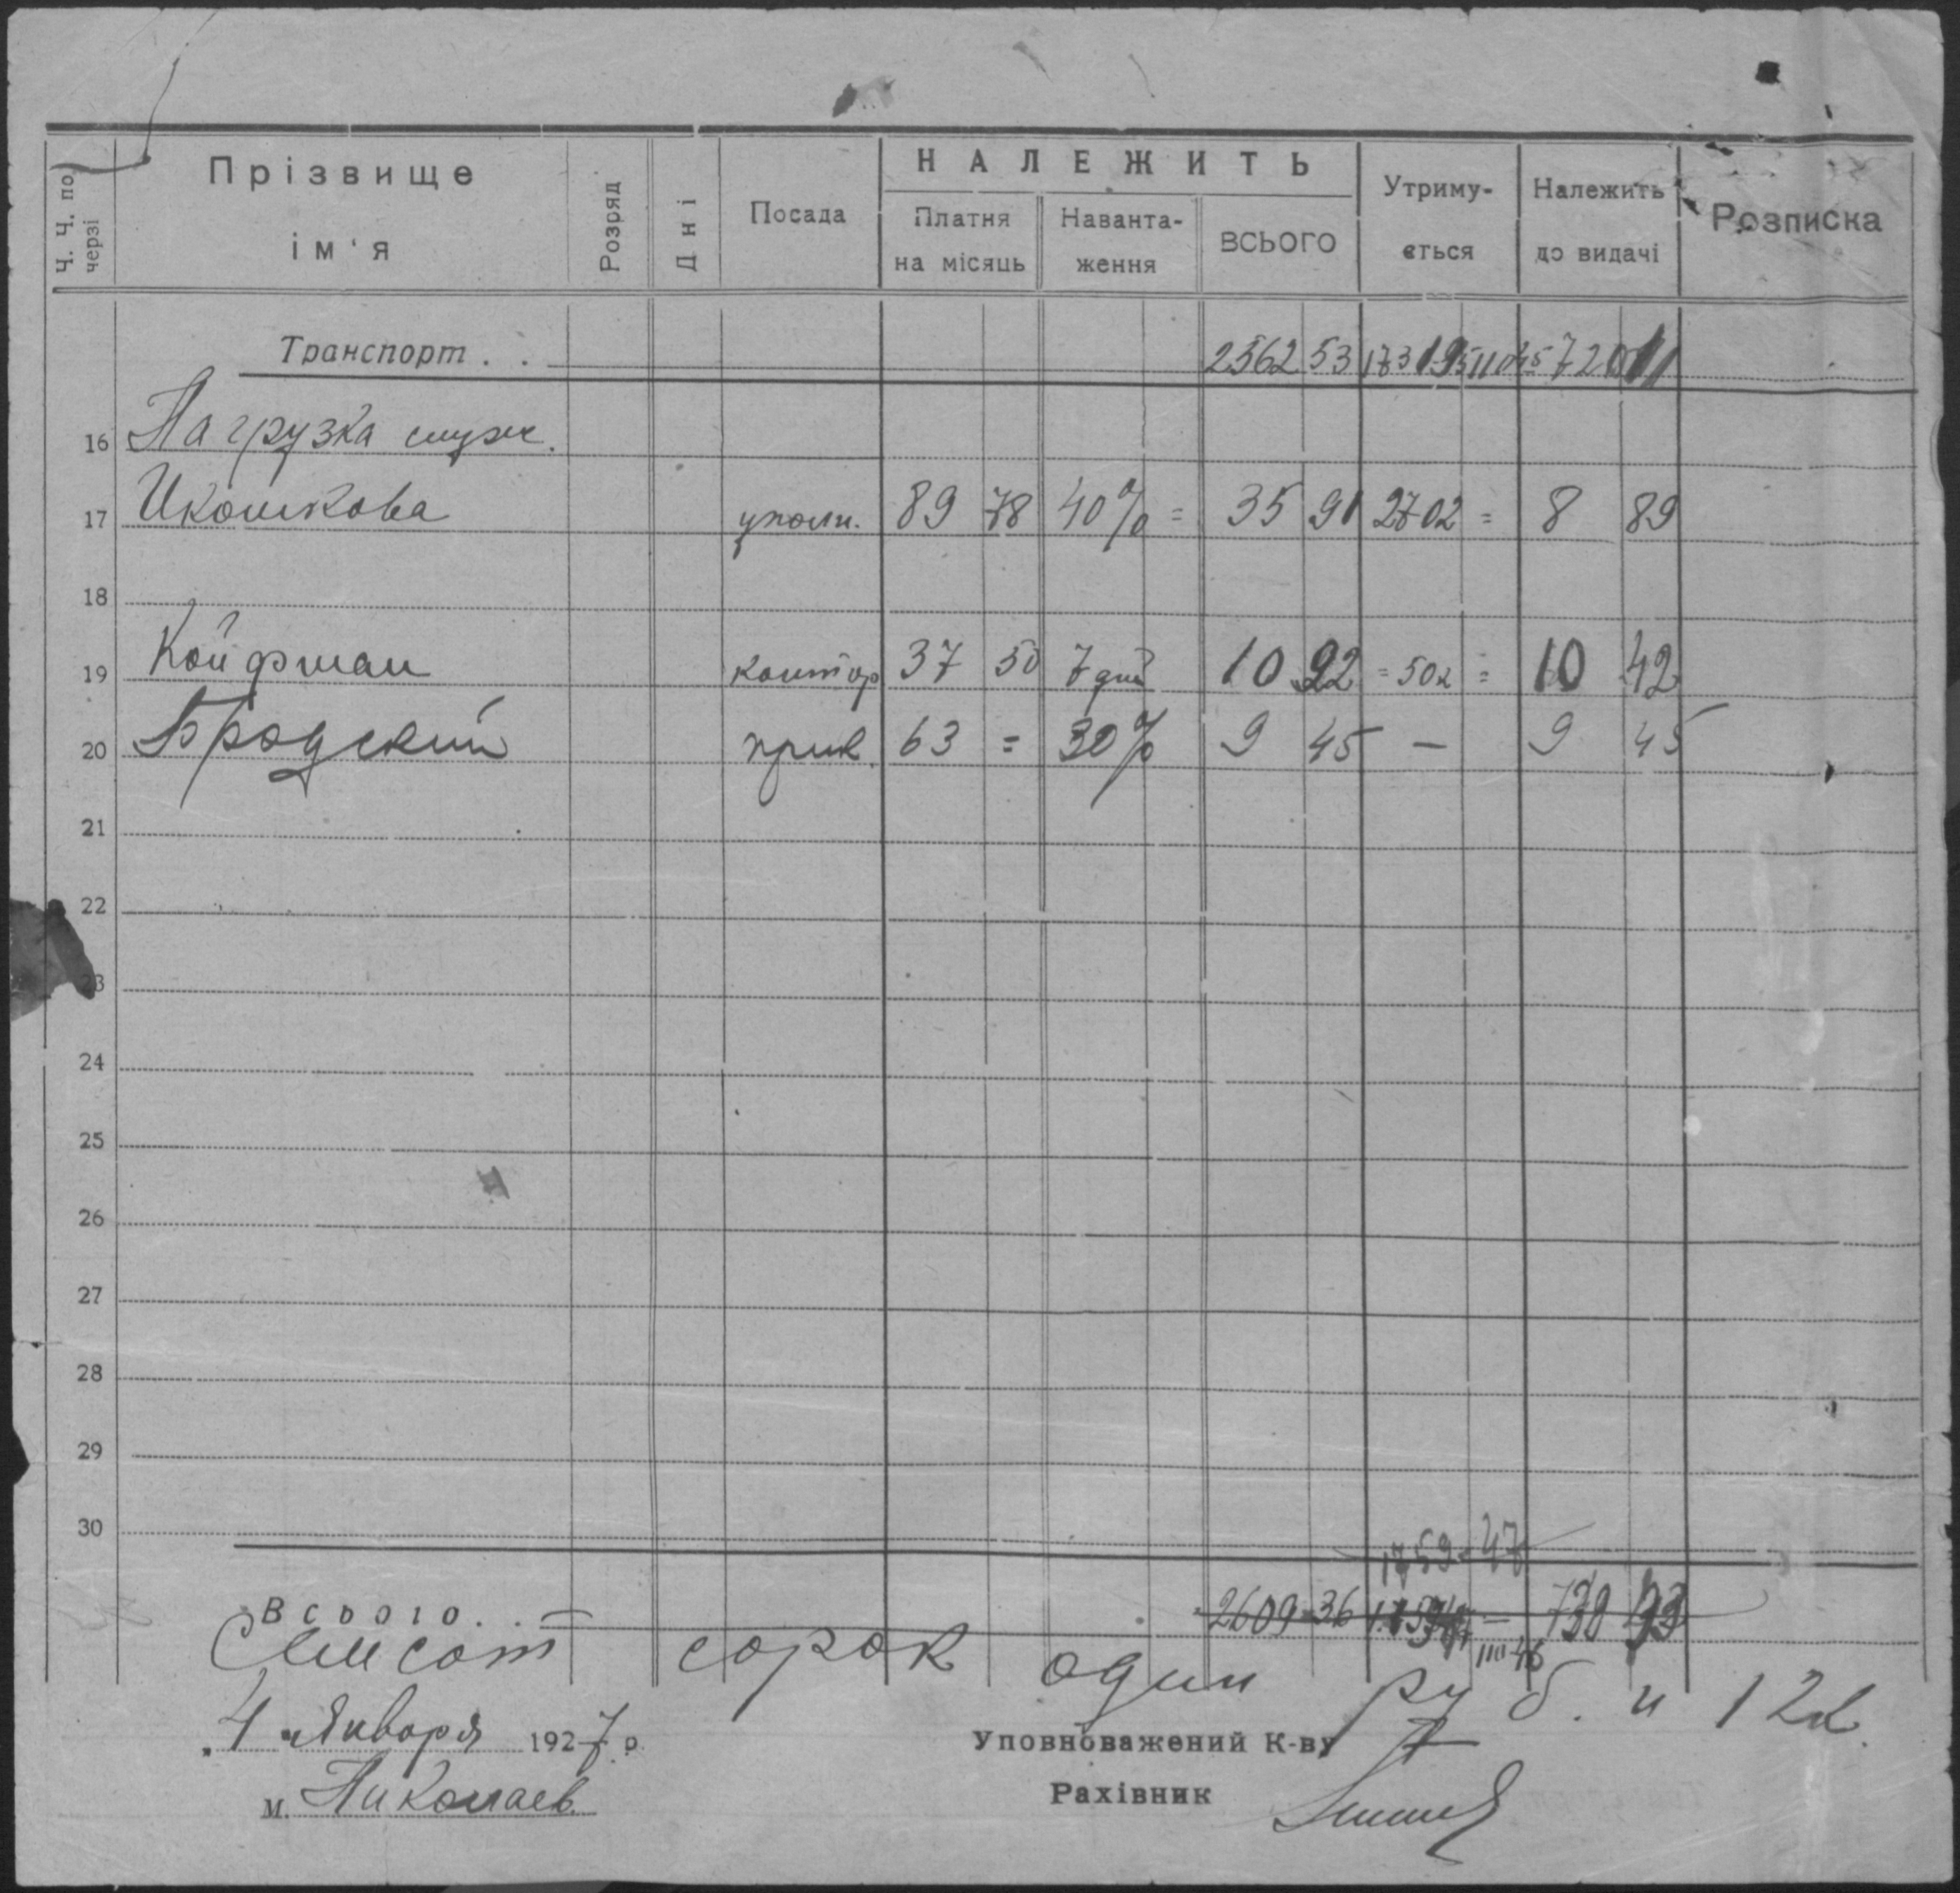 Ч. Ч. по черзі
Прізвище ім'я
Розряд
Дні
Посада
НАЛЕЖИТЬ
Платня на місяць
Наванта-ження
ВСЬОГО
Утриму-ється
Належить до видачі
Розписка
Транспорт . . 2562 53
16 Нагрузка служ.
17 Икошкова уполн. 89 78 40% = 35 91 27 02 = 8 89
18
19 Койфман контор 37 50 7 дней 10 92 = 50к = 10 42
20 Бродский прик. 63 = 30% 9 45 — 9 45
21
22
23
24
25
26
27
28
29
30
1759-47
Всього. . 2609-36
Семсот сорок один руб. и 12к.
„4 Января 1927 р.
Уповноважений К-ву
м. Николаев.
Рахівник